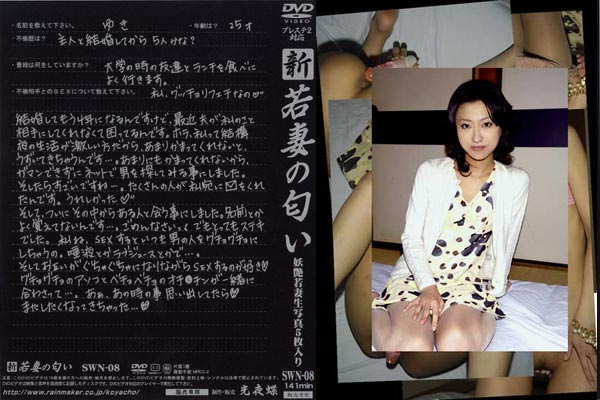 ・名前を教えて下さい。 ゆき ・年齢は？ 25才
・不倫歴は？ 主人と結婚してから 5人けな？
・普段は何をしていますか？ 大学の時の友達とランチを食べに
よく行きます。
・不倫相手とのSEXについて教えて下さい。 私、グッチョリフェチなの♡
結婚してもう4年になるんですけど、最近夫が私のこと
相手にしてくれなくて困ってるんです。ホラ、私って結構
夜の生活が激しい方だから、あまりかまってくれないと、
うずいてきちゃうんです…。あまりにもかまってくれないから、
ガマンできずにネットで男を探してみる事にしました。
そしたらすごいですねー。たくさんの人が私宛に✉をくれ
たんです。うれしかった♡
そして、ついにその中からある人と会う事にしました。名前とか
よく覚えてないんです…。ごめんなさいっ。でもとってもステキ
でした。私ね、SEXするといつも男の人をグチョグチョに
しちゃうの。唾液とかラブジュースとかで…。
そしてお互いがぐちゃぐちゃになりながらSEXするのが好き♡
グチョグチョのアソコと
合わさって…。あぁ、あの時の事思い出してたら
またしたくなってきちゃった…♡
新 若妻の匂い SWN-08
片面1層
複製不能 MPEG-2
http://www.rainmaker.co.jp/koyacho/
販売専用
制作・販売 光夜蝶
DVD
VIDEO
プレステ2
対応
新 若妻の匂い
妖艶若妻生写真5枚入り
SWN-08
141min
販売専用